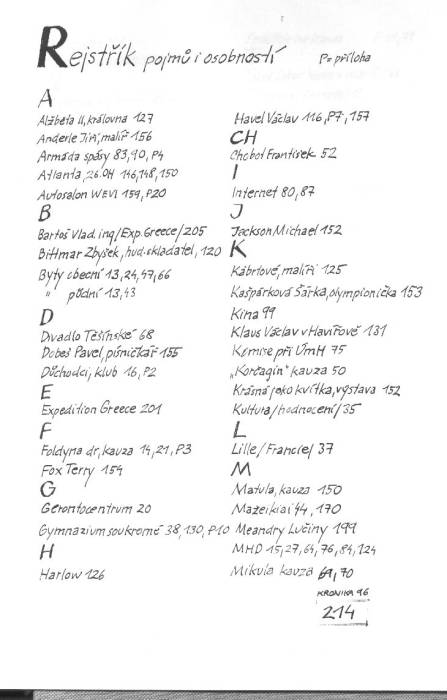 Rejstřík pojmů i osobností P=příloha
A
Alžběta II, královna 127
Anderle Jiří, malíř 156
Armáda spásy 83, 90, P4
Atlanta, 26.OH 146, 148, 150
Autosalon WEVI 159, P20
B
Bartoš Vlad. ing/Exp. Greece/205
Bittmar Zbyšek, hud.skladatel, 120
Byty obecní 13, 24, 47, 66
" půdní 13, 43
D
Divadlo Těšínské 68
Dobeš Pavel, písničkář 155
Důchodci, klub 16, P2
E
Expedition Greece 201
F
Foldyna dr, kauza 14, 21, P3
Fox Terry 154
G
Gerontocentrum 20
Gymnazium soukromé 38, 130, P10
H
Harlow 126
Havel Václav 116, P7, 157
CH
Chobot František 52
I
Internet 80, 87
J
Jackson Michael 152
K
Kábrtové, malíři 125
Kašpárková Šárka, olympionička 153
Kina 99
Klaus Václav v Havířově 131
Komise při ÚmH 75
„Korčagin" kauza 50
Krásná jako kvítka, výstava 152
Kultura/hodnocení/35
L
Lille/Francie/ 37
M
Matula, kauza 150
Mažeikiai 44, 170
Meandry Lučiny 199
MHD 15, 27, 64, 76, 84, 124
Mikula kauza 69, 70
KRONIKA 96
214